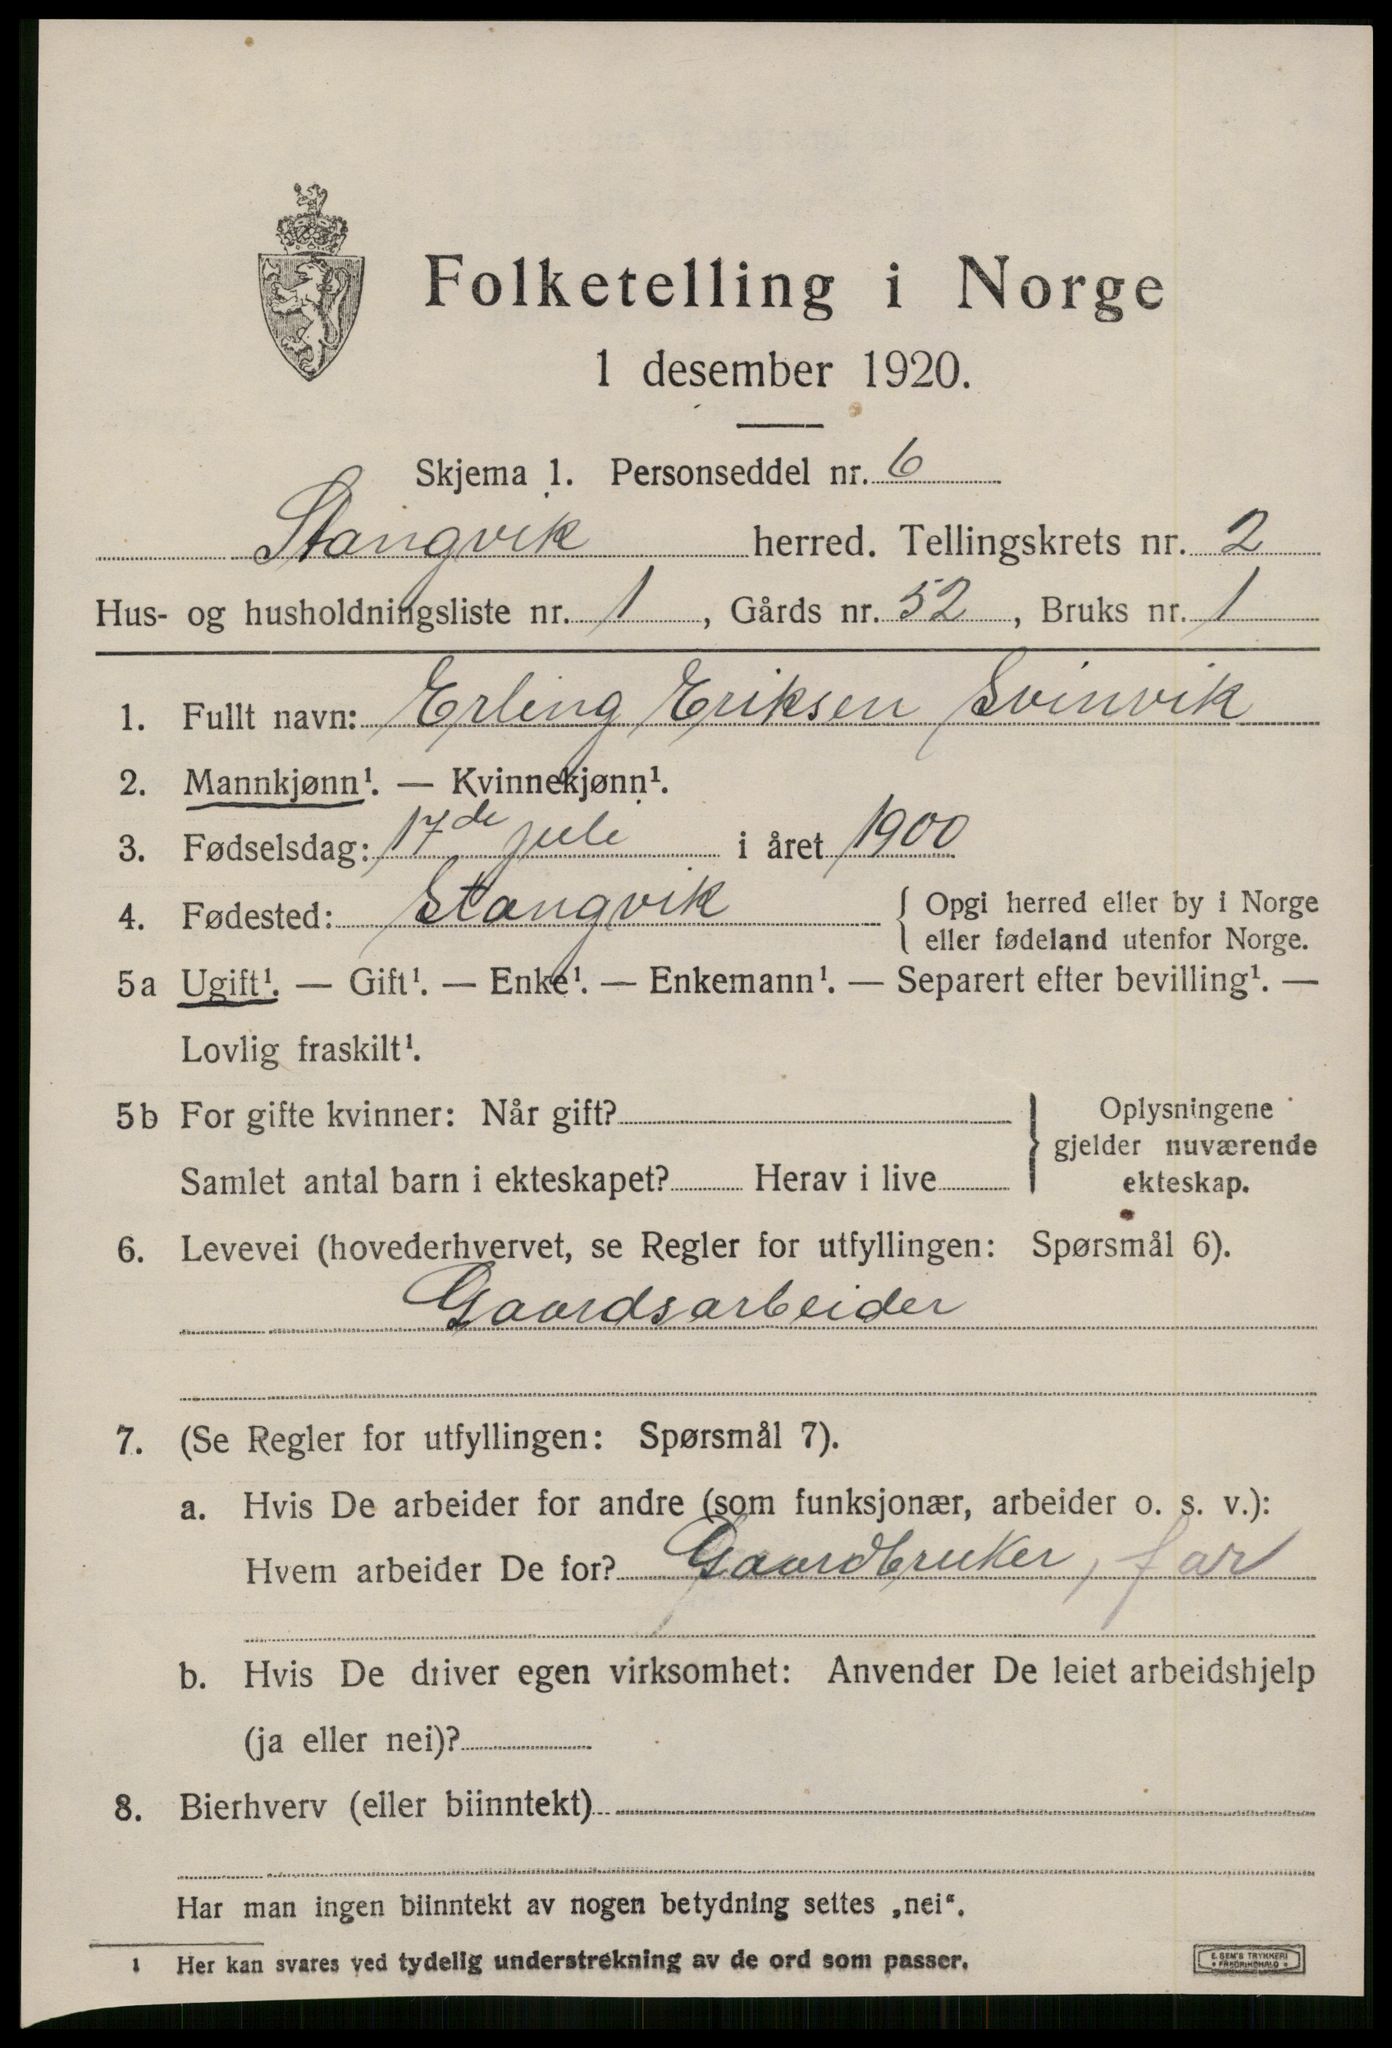 Folketelling i Norge
1 desember 1920.
Skjema 1. Personseddel nr. 6
Stangvik herred. Tellingskrets nr. 2
Hus- og husholdningsliste nr. 1, Gårds nr. 52, Bruks nr. 1
1. Fullt navn: Erling Eriksen Svinvik
2. Mannkjønn¹. — Kvinnekjønn¹.
3. Fødselsdag: 17de juli i året 1900
4. Fødested: Stangvik { Opgi herred eller by i Norge
eller fødeland utenfor Norge.
5a Ugift¹. — Gift¹. — Enke¹. — Enkemann¹. — Separert efter bevilling¹. —
Lovlig fraskilt¹.
5b For gifte kvinner: Når gift? } Oplysningene
gjelder nuværende
Samlet antal barn i ekteskapet? Herav i live ekteskap.
6. Levevei (hovederhvervet, se Regler for utfyllingen: Spørsmål 6).
Gaardsarbeider
7. (Se Regler for utfyllingen: Spørsmål 7).
a. Hvis De arbeider for andre (som funksjonær, arbeider o. s. v.):
Hvem arbeider De for? Gaardbruker, far
b. Hvis De driver egen virksomhet: Anvender De leiet arbeidshjelp
(ja eller nei)?
8. Bierhverv (eller biinntekt)
Har man ingen biinntekt av nogen betydning settes „nei“.
1 Her kan svares ved tydelig understrekning av de ord som passer.
E. SEM'S TRYKKERI
FREDRIKSHALD